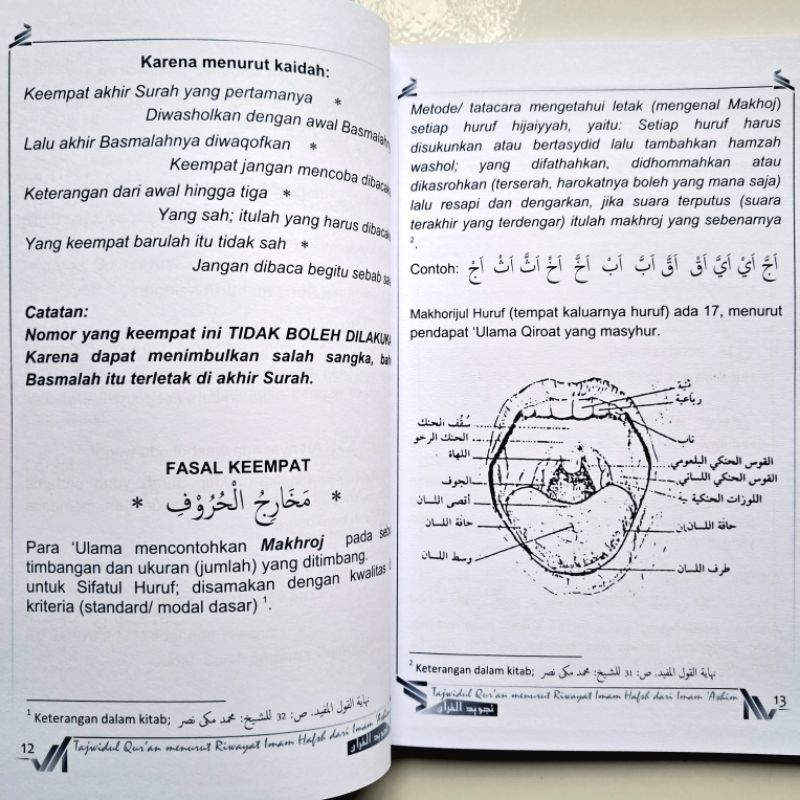 Karena menurut kaidah:
Keempat akhir Surah yang pertamanya *
Diwasholkan dengan awal Basmalah
Lalu akhir Basmalahnya diwaqofkan *
Keempat jangan mencoba
Keterangan dari awal hingga tiga *
Yang sah; itulah yang harus
Yang keempat barulah itu tidak sah *
Jangan dibaca begitu sebab
Catatan:
Nomor yang keempat ini TIDAK BOLEH
Karena dapat menimbulkan salah sangka,
Basmalah itu terletak di akhir Surah.
FASAL KEEMPAT
* مَخَارِجُ الْحُرُوْفِ *
Para ‘Ulama mencontohkan Makhroj pada
timbangan dan ukuran (jumlah) yang ditimbang.
untuk Sifatul Huruf; disamakan dengan kwalitas
kriteria (standard/ modal dasar) 1.
1 Keterangan dalam kitab; نهاية القول المفيد. ص: 32 للشيخ: محمد مكى نصر
12 Tajwidul Qur'an menurut Riwayat Imam Hafsh dari Imam 'Ashim
تجويد القرآن
Metode/ tatacara mengetahui letak (mengenal Makhoj)
setiap huruf hijaiyyah, yaitu: Setiap huruf harus
disukunkan atau bertasydid lalu tambahkan hamzah
washol; yang difathahkan, didhommahkan atau
dikasrohkan (terserah, harokatnya boleh yang mana saja)
lalu resapi dan dengarkan, jika suara terputus (suara
terakhir yang terdengar) itulah makhroj yang sebenarnya
2.
Contoh: اَجَّ اَيْ اَيَّ اَقْ اَقَّ اَبَّ اَبْ اَخَّ اَخْ اَثَّ اَثْ اَجْ
Makhorijul Huruf (tempat kaluarnya huruf) ada 17, menurut
pendapat ‘Ulama Qiroat yang masyhur.
ثنية
رباعية
سُقُف الحنك
الحنك الرخو
ناب
اللهاة
القوس الحنكي البلعومي
الجوف
القوس الحنكي اللساني
أقصى اللسان
اللوزات الحنكية
حافة اللسان
حافة اللسان
وسط اللسان
طرف اللسان
2 Keterangan dalam kitab; نهاية القول المفيد. ص: 31 للشيخ: محمد مكى نصر
Tajwidul Qur'an menurut Riwayat Imam Hafsh dari Imam 'Ashim 13
تجويد القرآن